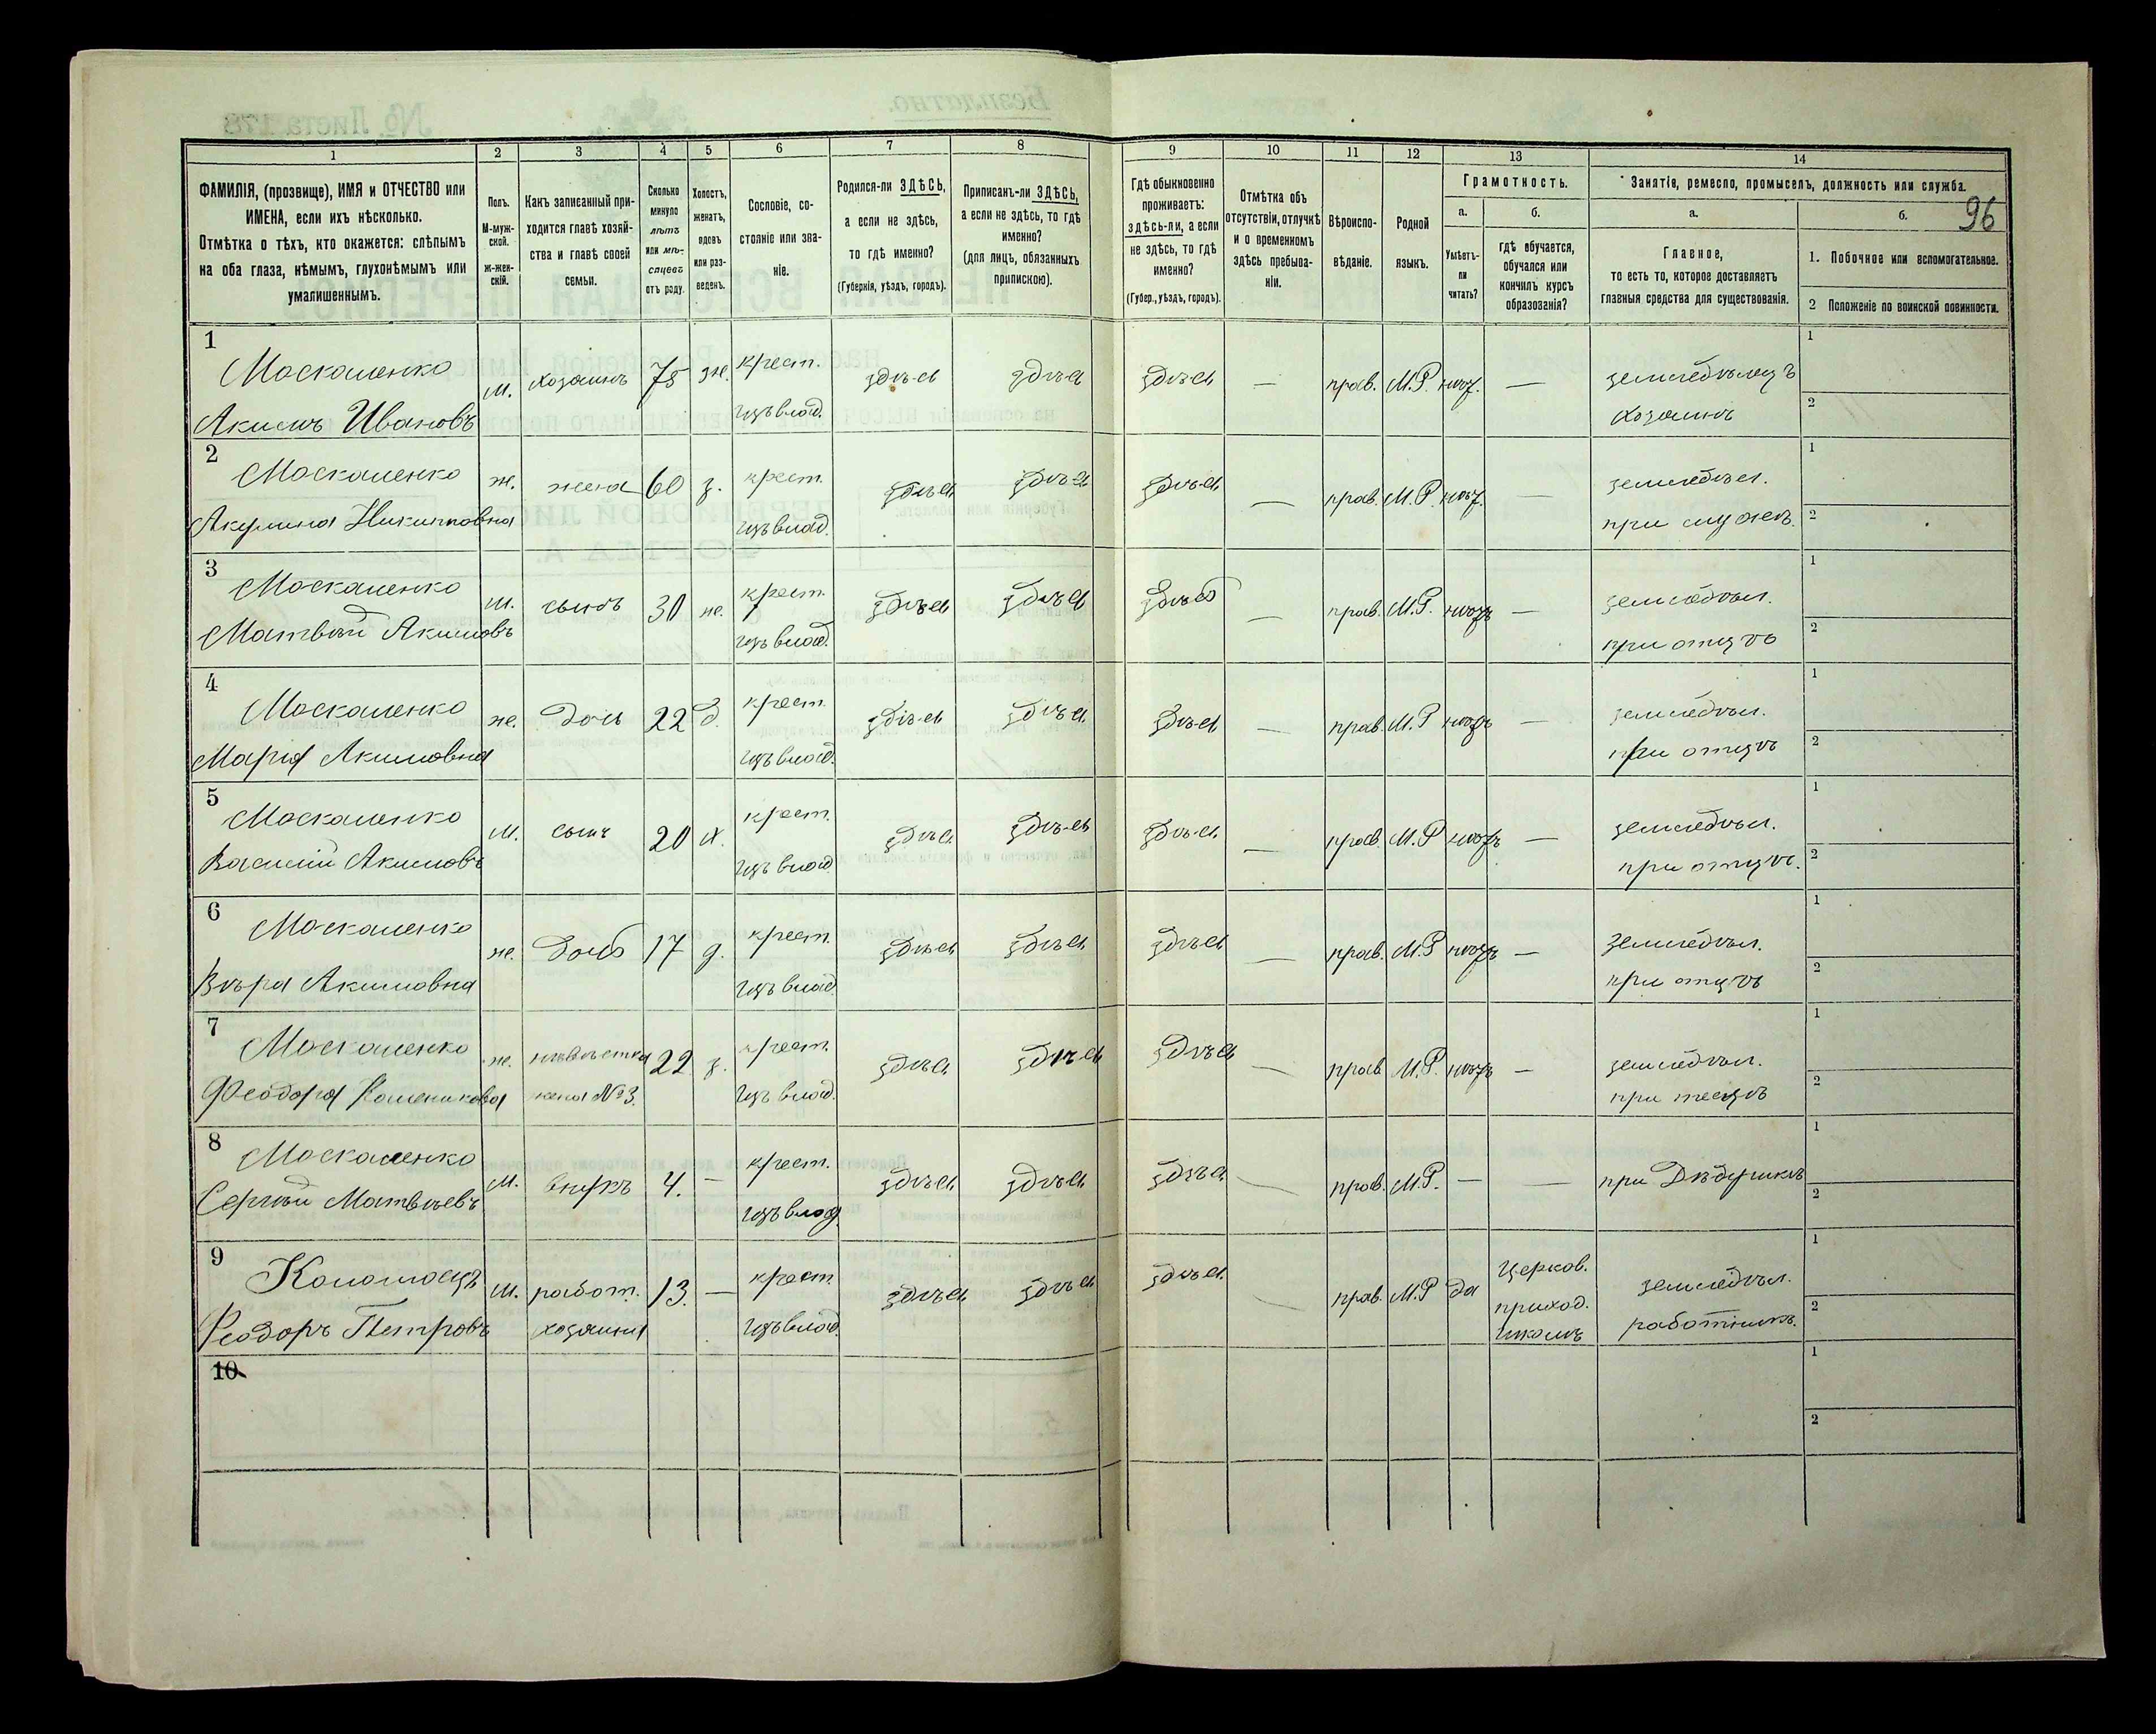 1 2 3 4 5 6 7 8 9 10 11 12 13 14
ФАМИЛІЯ, (прозвище), ИМЯ и ОТЧЕСТВО или ИМЕНА, если ихъ нѣсколько.
Отмѣтка о тѣхъ, кто окажется: слѣпымъ на оба глаза, нѣмымъ, глухонѣмымъ или умалишеннымъ.
Полъ. М-мужской. ж-женскій.
Какъ записанный приходится главѣ хозяйства и главѣ своей семьи.
Сколько минуло лѣтъ или мѣсяцевъ отъ роду.
Холостъ, женатъ, вдовъ или разведенъ.
Сословіе, состояніе или званіе.
Родился-ли ЗДѢСЬ, а если не здѣсь, то гдѣ именно? (Губернія, уѣздъ, городъ).
Приписанъ-ли ЗДѢСЬ, а если не здѣсь, то гдѣ именно? (для лицъ, обязанныхъ припискою).
Гдѣ обыкновенно проживаетъ: здѣсь-ли, а если не здѣсь, то гдѣ именно? (Губер., уѣздъ, городъ).
Отмѣтка объ отсутствіи, отлучкѣ и о временномъ здѣсь пребываніи.
Вѣроисповѣданіе.
Родной языкъ.
Грамотность.
а. Умѣетъ-ли читать?
б. гдѣ обучается, обучался или кончилъ курсъ образованія?
Занятіе, ремесло, промыселъ, должность или служба.
96
а. Главное, то есть то, которое доставляетъ главныя средства для существованія.
б.
1. Побочное или вспомогательное.
2 Положеніе по воинской повинности.
1 Москаленко м. хозяинъ 75 ж. крест. здѣсь здѣсь здѣсь — прав. М.Р. нѣт. — земледѣлецъ 1
Акимъ Ивановъ изъ влад. хозяинъ 2
2 Москаленко ж. жена 60 з. крест. здѣсь здѣсь здѣсь — прав. М.Р. нѣт. — земледѣл. 1
Акулина Никитовна изъ влад. при мужѣ. 2
3 Москаленко м. сынъ 30 ж. крест. здѣсь здѣсь здѣсь — прав. М.Р. нѣтъ — земледѣл. 1
Матвѣй Акимовъ изъ влад. при отцѣ 2
4 Москаленко ж. дочь 22 д. крест. здѣсь здѣсь здѣсь — прав. М.Р нѣтъ — земледѣл. 1
Марія Акимовна изъ влад. при отцѣ 2
5 Москаленко м. сынъ 20 х. крест. здѣсь здѣсь здѣсь — прав. М.Р нѣтъ — земледѣл. 1
Василій Акимовъ изъ влад при отцѣ. 2
6 Москаленко ж. дочь 17 д. крест. здѣсь здѣсь здѣсь — прав. М.Р нѣтъ — земледѣл. 1
Вѣра Акимовна изъ влад. при отцѣ 2
7 Москаленко ж. невѣстка 22 з. крест. здѣсь здѣсь здѣсь — прав М.Р. нѣтъ — земледѣл. 1
Феодора жена №3. изъ влад. при тесцѣ 2
8 Москаленко м. внукъ 4. — крест. здѣсь здѣсь здѣсь — прав. М.Р. — — при дѣдушкѣ 1
Сергѣй Матвѣевъ изъ влад. 2
9 Коломоецъ м. работ. 13. — крест. здѣсь здѣсь здѣсь — прав. М.Р да церков. приход. школѣ земледѣл. 1
Феодоръ Петровъ хозяина изъ влад. работникъ. 2
10 1
2